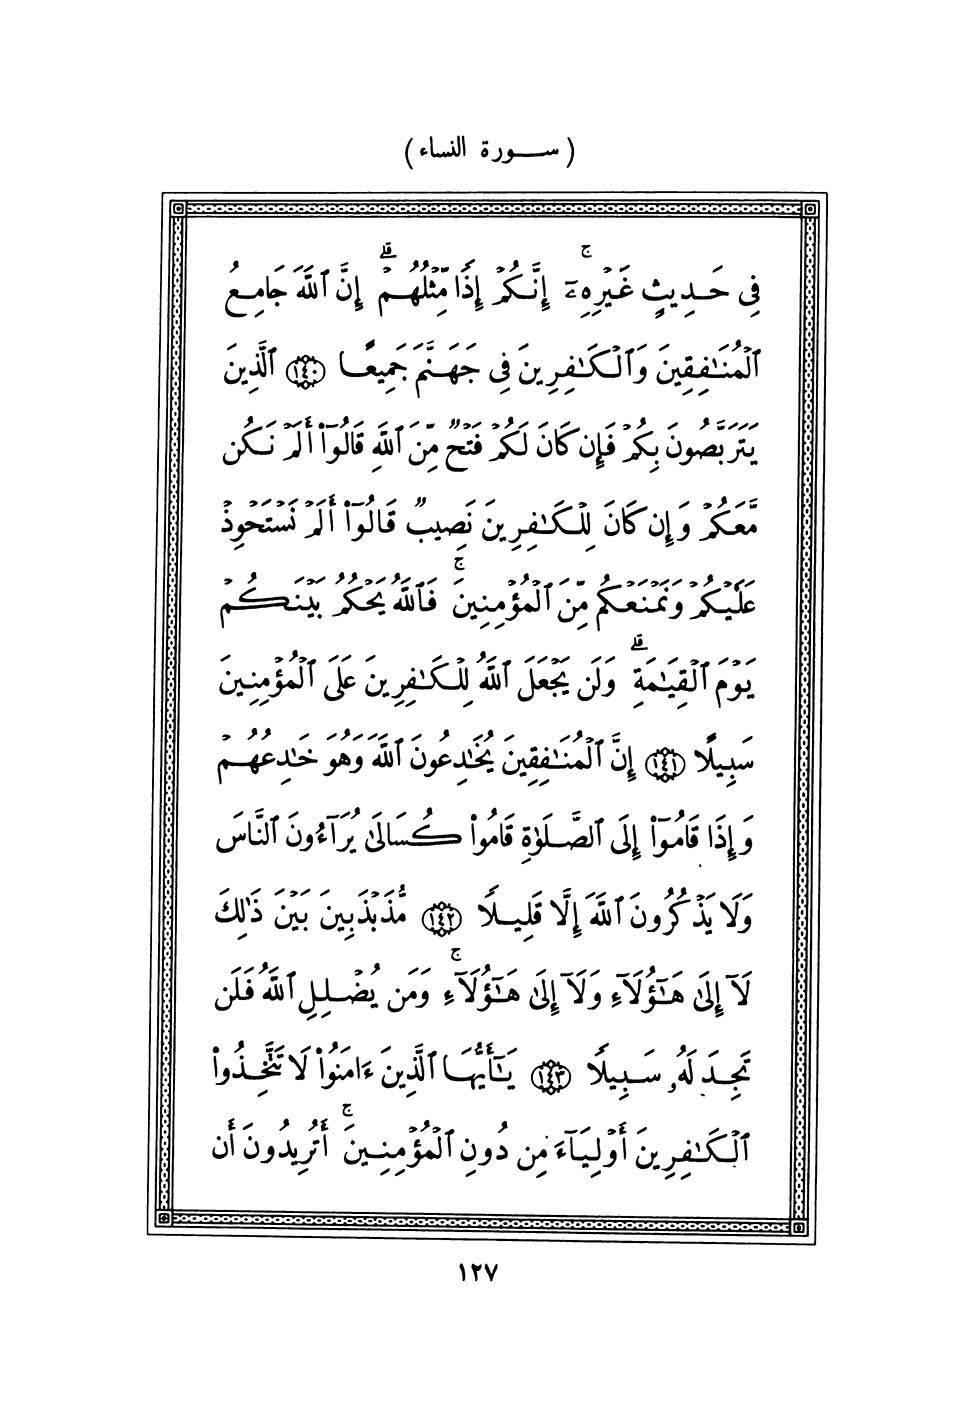 ( ســـورة النساء )
فِى حَدِيثٍ غَيْرِهِۦٓ ۚ إِنَّكُمْ إِذًا مِّثْلُهُمْ ۗ إِنَّ ٱللَّهَ جَامِعُ
ٱلْمُنَـٰفِقِينَ وَٱلْكَـٰفِرِينَ فِى جَهَنَّمَ جَمِيعًا ﴿١٤٠﴾ ٱلَّذِينَ
يَتَرَبَّصُونَ بِكُمْ فَإِن كَانَ لَكُمْ فَتْحٌ مِّنَ ٱللَّهِ قَالُوٓا۟ أَلَمْ نَكُن
مَّعَكُمْ وَإِن كَانَ لِلْكَـٰفِرِينَ نَصِيبٌ قَالُوٓا۟ أَلَمْ نَسْتَحْوِذْ
عَلَيْكُمْ وَنَمْنَعْكُم مِّنَ ٱلْمُؤْمِنِينَ ۚ فَٱللَّهُ يَحْكُمُ بَيْنَكُمْ
يَوْمَ ٱلْقِيَـٰمَةِ ۗ وَلَن يَجْعَلَ ٱللَّهُ لِلْكَـٰفِرِينَ عَلَى ٱلْمُؤْمِنِينَ
سَبِيلًا ﴿١٤١﴾ إِنَّ ٱلْمُنَـٰفِقِينَ يُخَـٰدِعُونَ ٱللَّهَ وَهُوَ خَـٰدِعُهُمْ
وَإِذَا قَامُوٓا۟ إِلَى ٱلصَّلَوٰةِ قَامُوا۟ كُسَالَىٰ يُرَآءُونَ ٱلنَّاسَ
وَلَا يَذْكُرُونَ ٱللَّهَ إِلَّا قَلِيلًا ﴿١٤٢﴾ مُّذَبْذَبِينَ بَيْنَ ذَٰلِكَ
لَآ إِلَىٰ هَـٰٓؤُلَآءِ وَلَآ إِلَىٰ هَـٰٓؤُلَآءِ ۚ وَمَن يُضْلِلِ ٱللَّهُ فَلَن
تَجِدَ لَهُۥ سَبِيلًا ﴿١٤٣﴾ يَـٰٓأَيُّهَا ٱلَّذِينَ ءَامَنُوا۟ لَا تَتَّخِذُوا۟
ٱلْكَـٰفِرِينَ أَوْلِيَآءَ مِن دُونِ ٱلْمُؤْمِنِينَ ۚ أَتُرِيدُونَ أَن
١٢٧